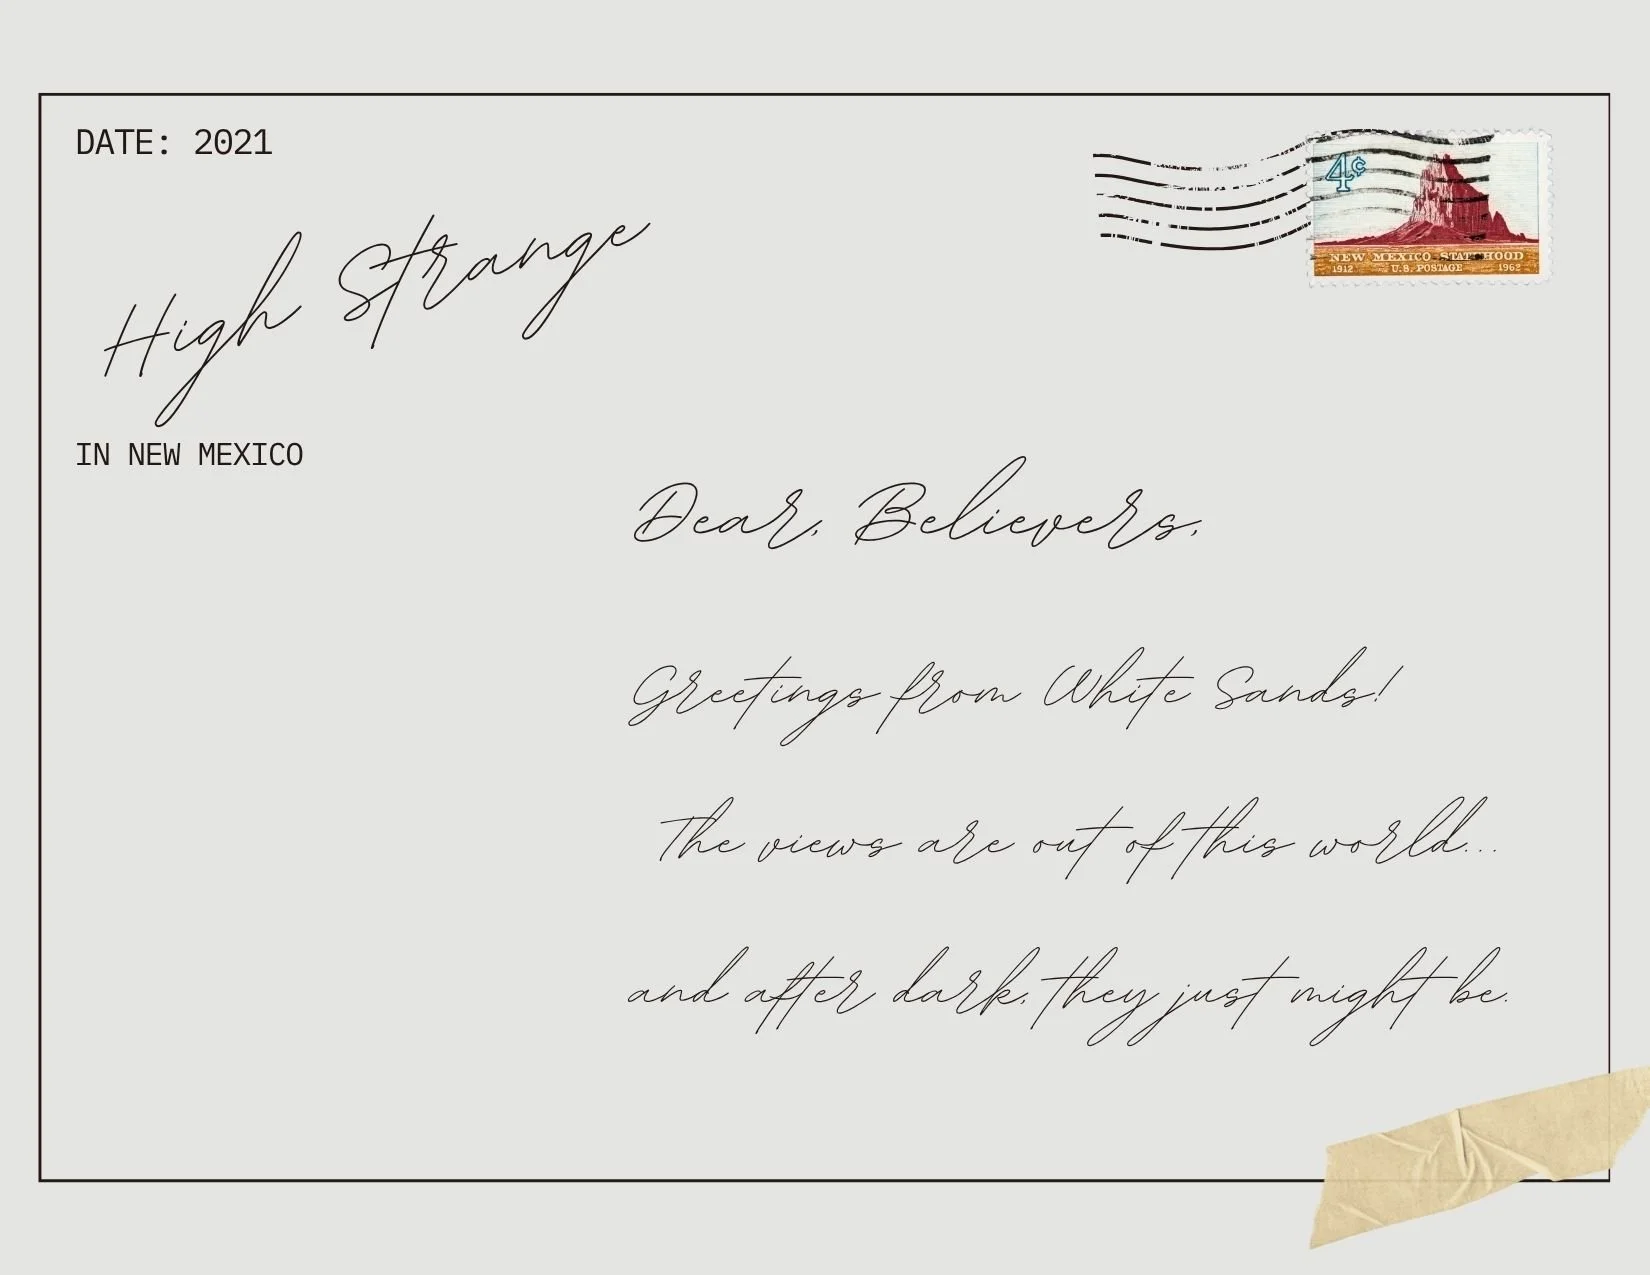 DATE: 2021
High Strange
IN NEW MEXICO
4¢
NEW MEXICO STATEHOOD
1912 U.S. POSTAGE 1962
Dear, Believers,
Greetings from White Sands!
The views are out of this world...
and after dark, they just might be.